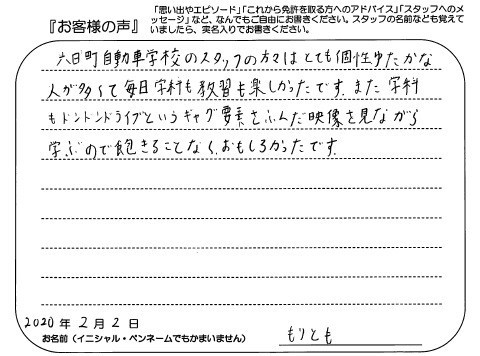 『お客様の声』
「思い出やエピソード」「これから免許を取る方へのアドバイス」「スタッフへのメ
ッセージ」など、なんでもご自由にお書きください。スタッフの名前なども覚えて
いましたら、実名入りでお書きください。
六日町自動車学校のスタッフの方々はとても個性ゆたかな
人が多くて毎日学科も教習も楽しかったです。また学科
もドントンドライブというギャグ要素をふんだ映像を見ながら
学ぶので飽きることなく、おもしろかったです。
2020年2月2日
お名前（イニシャル・ペンネームでもかまいません）
もりとも